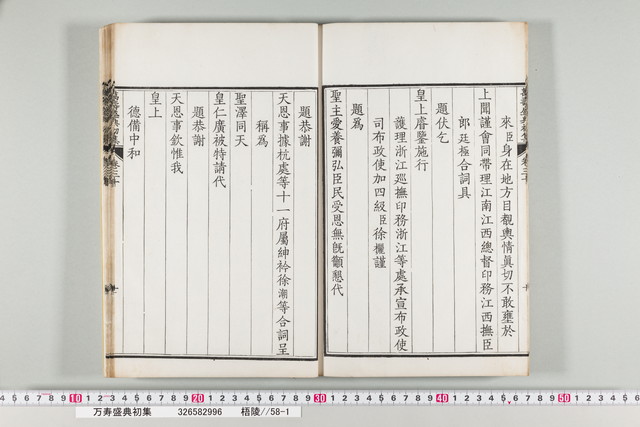 來臣身在地方目覩輿情眞切不敢壅於
上聞謹會同帶理江南江西總督印務江西撫臣
郎廷極合詞具
題伏乞
皇上睿鑒施行
護理浙江巡撫印務浙江等處承宣布政使
司布政使加四級臣徐櫃謹
題爲
聖主愛養彌弘臣民受恩無旣籲懇代
題恭謝
天恩事據杭處等十一府屬紳衿徐潮等合詞呈
稱爲
聖澤同天
皇仁廣被特請代
題恭謝
天恩事欽惟我
皇上
德備中和
万寿盛典初集 326582996 梧陵//58-1
10 20 30 40 50